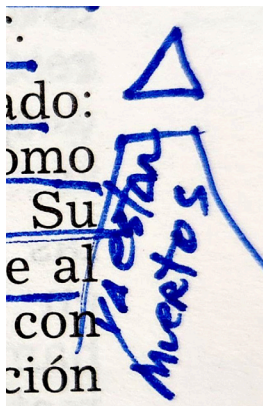 ado:
omo
Su
e al
con
ción
Ya están
MUERTOS